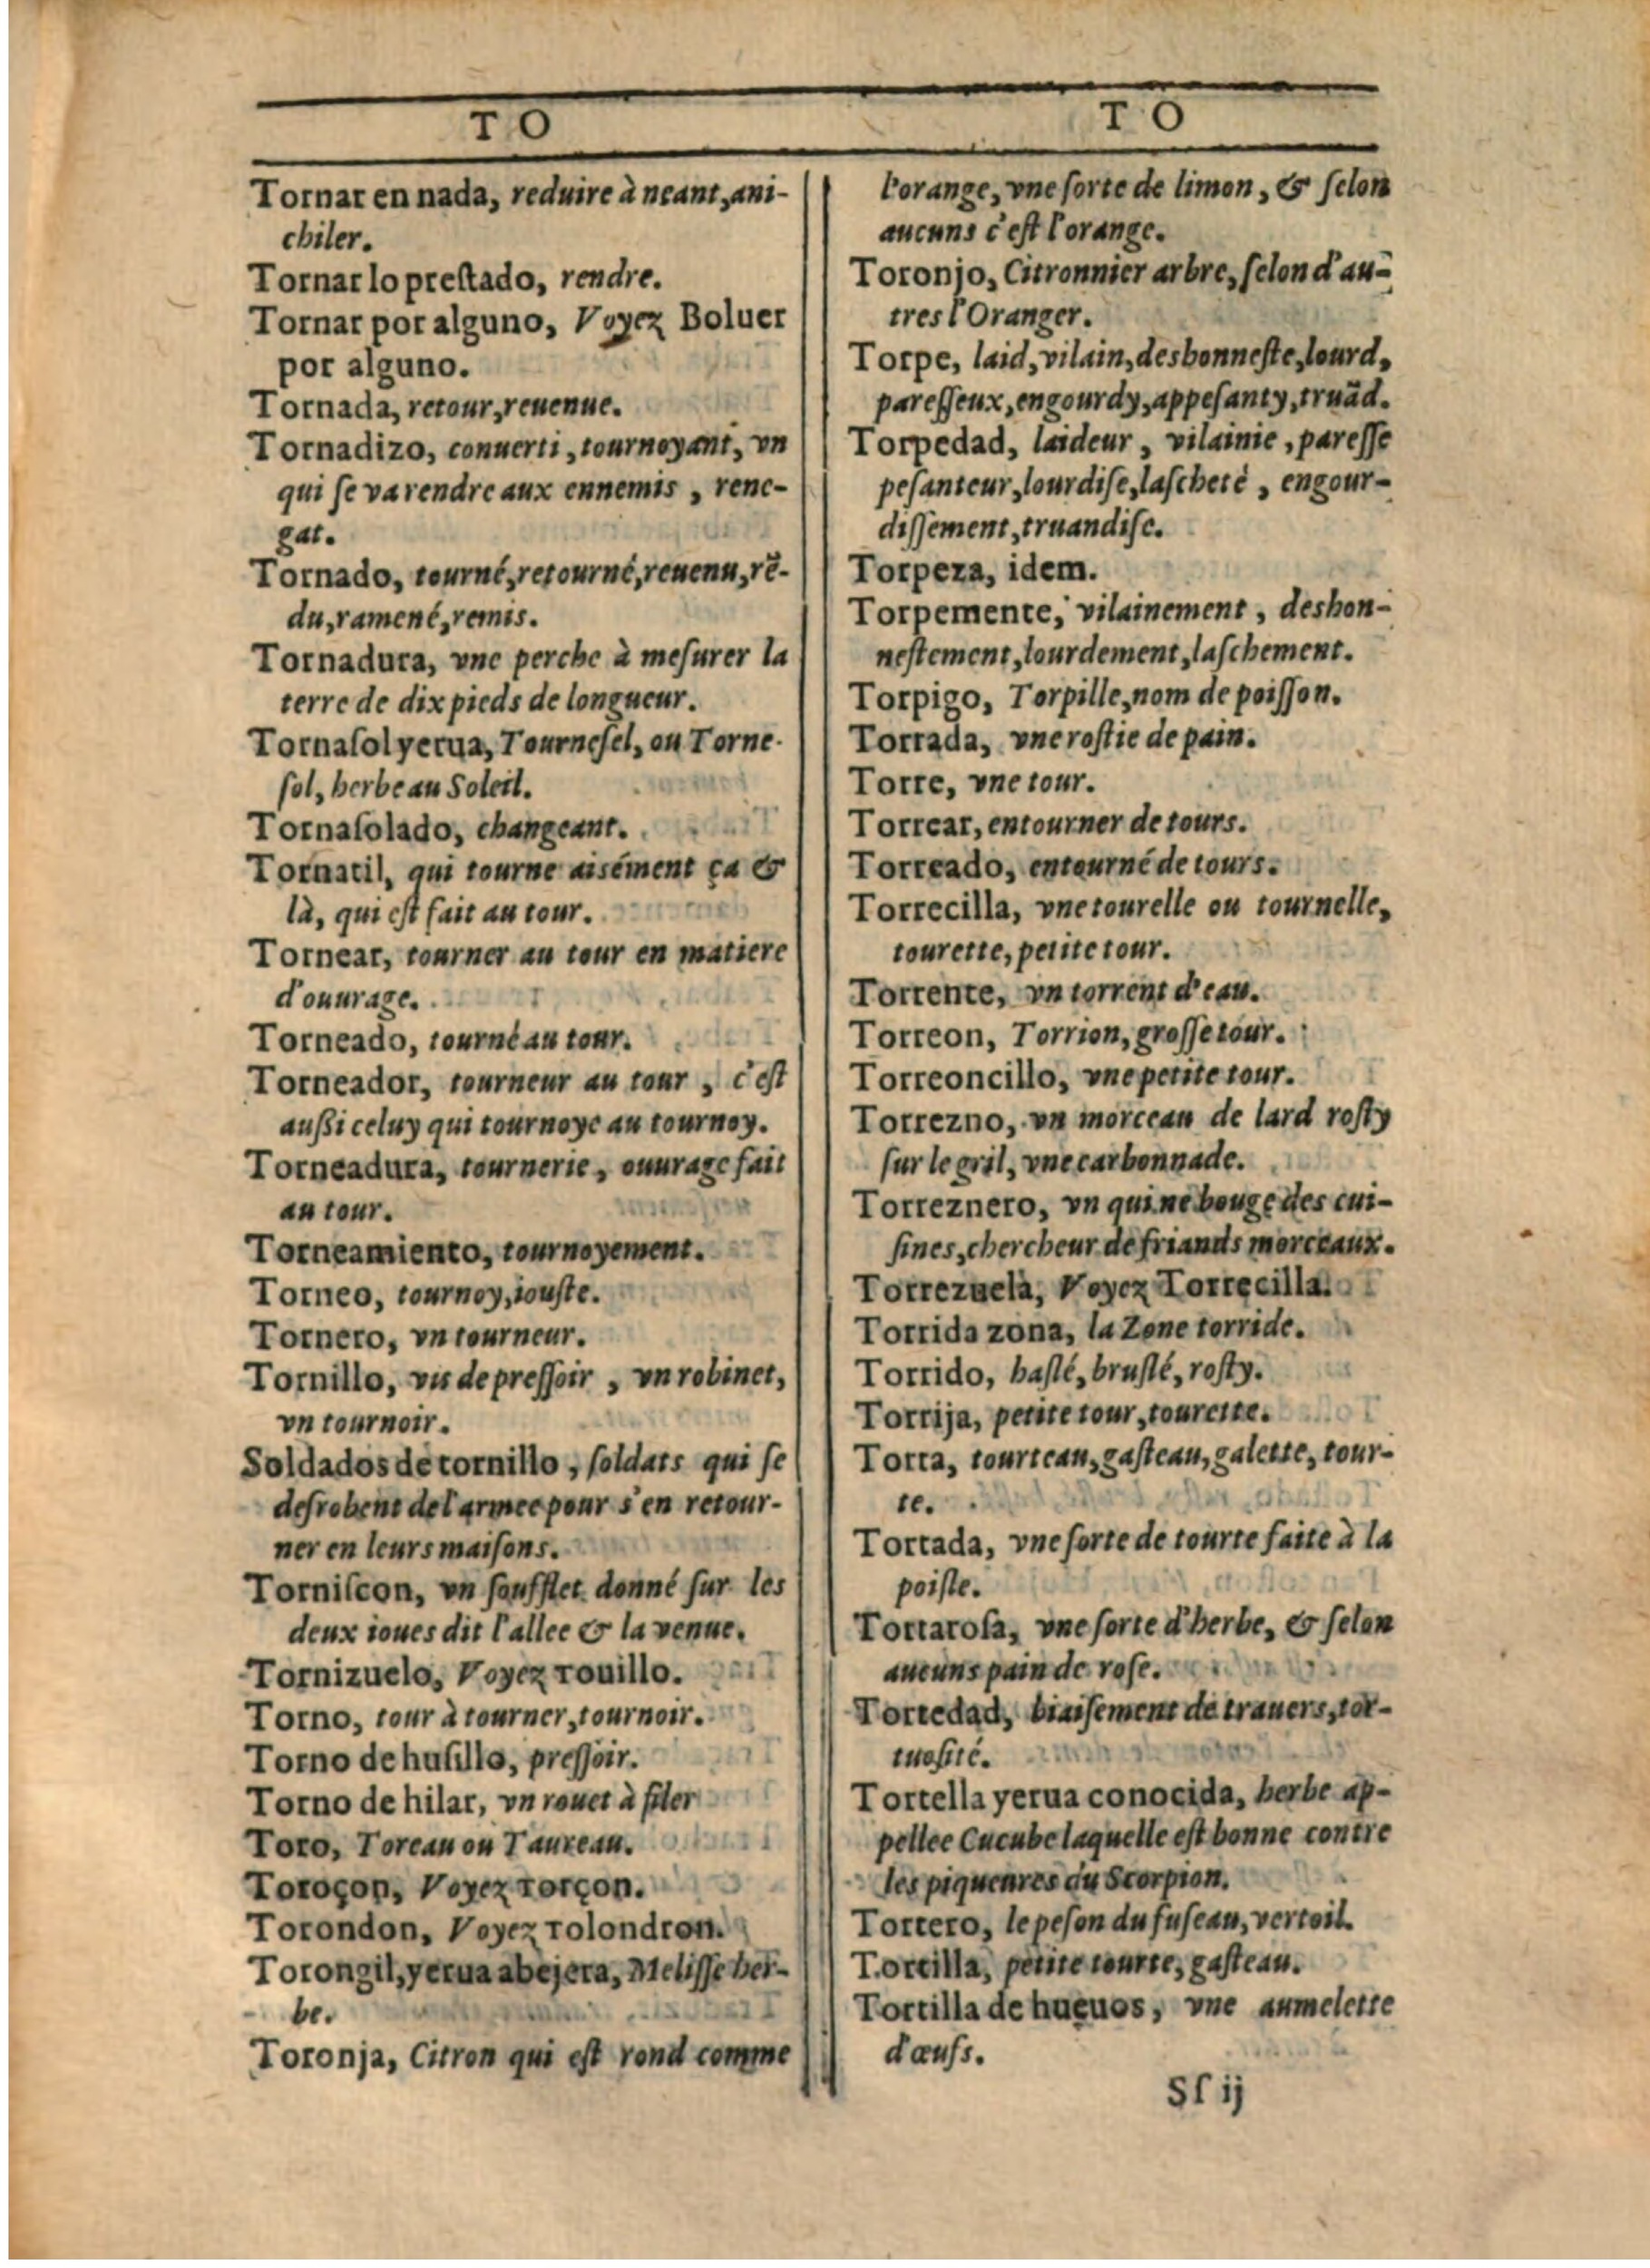 TO
Tornar en nada, reduire à neant, ani-
chiler.
Tornar lo preſtado, rendre.
Tornar por alguno, Voyez Boluer
por alguno.
Tornada, retour, reuenue.
Tornadizo, conuerti, tournoyant, vn
qui ſe va rendre aux ennemis, rene-
gat.
Tornado, tourné, retourné, reuenu, rẽ-
du, ramené, remis.
Tornadura, vne perche à meſurer la
terre de dix pieds de longueur.
Tornaſol yerua, Tourneſel, ou Torne-
ſol, herbe au Soleil.
Tornaſolado, changeant.
Tornatil, qui tourne aisément ça &
là, qui eſt fait au tour.
Tornear, tourner au tour en matiere
d'ouurage.
Torneado, tourné au tour.
Torneador, tourneur au tour, c'eſt
auſsi celuy qui tournoye au tournoy.
Torneadura, tournerie, ouurage fait
au tour.
Torneamiento, tournoyement.
Torneo, tournoy, iouſte.
Tornero, vn tourneur.
Tornillo, vis de preſſoir, vn robinet,
vn tournoir.
Soldados de tornillo, ſoldats qui ſe
deſrobent de l'armee pour s'en retour-
ner en leurs maiſons.
Torniſcon, vn ſoufflet donné ſur les
deux ioues dit l'allee & la venue.
Tornizuelo, Voyez Touillo.
Torno, tour à tourner, tournoir.
Torno de huſillo, preſſoir.
Torno de hilar, vn rouet à filer
Toro, Toreau ou Taureau.
Toroçon, Voyez Torçon.
Torondon, Voyez Tolondron.
Torongil, yerua abejera, Meliſſe her-
be.
Toronja, Citron qui eſt rond comme
TO
l'orange, vne ſorte de limon, & ſelon
aucuns c'eſt l'orange.
Toronjo, Citronnier arbre, ſelon d'au-
tres l'Oranger.
Torpe, laid, vilain, desbonneſte, lourd,
pareſſeux, engourdy, appeſanty, truãd.
Torpedad, laideur, vilainie, pareſſe
peſanteur, lourdiſe, laſcheté, engour-
diſſement, truandiſe.
Torpeza, idem.
Torpemente, vilainement, deshon-
neſtement, lourdement, laſchement.
Torpigo, Torpille, nom de poiſſon.
Torrada, vne roſtie de pain.
Torre, vne tour.
Torrear, entourner de tours.
Torreado, entourné de tours.
Torrecilla, vne tourelle ou tournelle,
tourette, petite tour.
Torrente, vn torrent d'eau.
Torreon, Torrion, groſſe tour.
Torreoncillo, vne petite tour.
Torrezno, vn morceau de lard roſty
ſur le gril, vne carbonnade.
Torreznero, vn qui ne bouge des cui-
ſines, chercheur de friands morceaux.
Torrezuela, Voyez Torrecilla.
Torrida zona, la Zone torride.
Torrido, haſlé, bruſlé, roſty.
Torrija, petite tour, tourette.
Torta, tourteau, gaſteau, galette, tour-
te.
Tortada, vne ſorte de tourte faite à la
poiſle.
Tortaroſa, vne ſorte d'herbe, & ſelon
aucuns pain de roſe.
Tortedad, biaiſement de trauers, tor-
tuoſité.
Tortella yerua conocida, herbe ap-
pellee Cucube laquelle eſt bonne contre
les piqueures du Scorpion.
Tortero, le peſon du fuſeau, vertoil.
Tortilla, petite tourte, gaſteau.
Tortilla de hueuos, vne aumelette
d'œufs.
Sſ ij